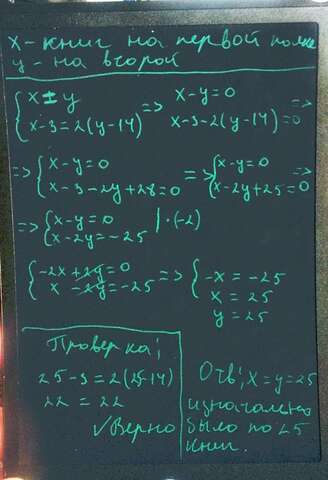 x - книг на первой полке
y - на второй
{x = y => x-y=0 =>
{x-3=2(y-14) x-3-2(y-14)=0
=> {x-y=0 => {x-y=0
{x-3-2y+28=0 {x-2y+25=0
=> {x-y=0 | ·(-2)
{x-2y=-25
{-2x+2y=0 => {-x=-25
{x-2y=-25 x=25
y=25
Проверка:
25-3=2(25-14)
22=22
√Верно
Отв: x=y=25
изначально
было по 25
книг.